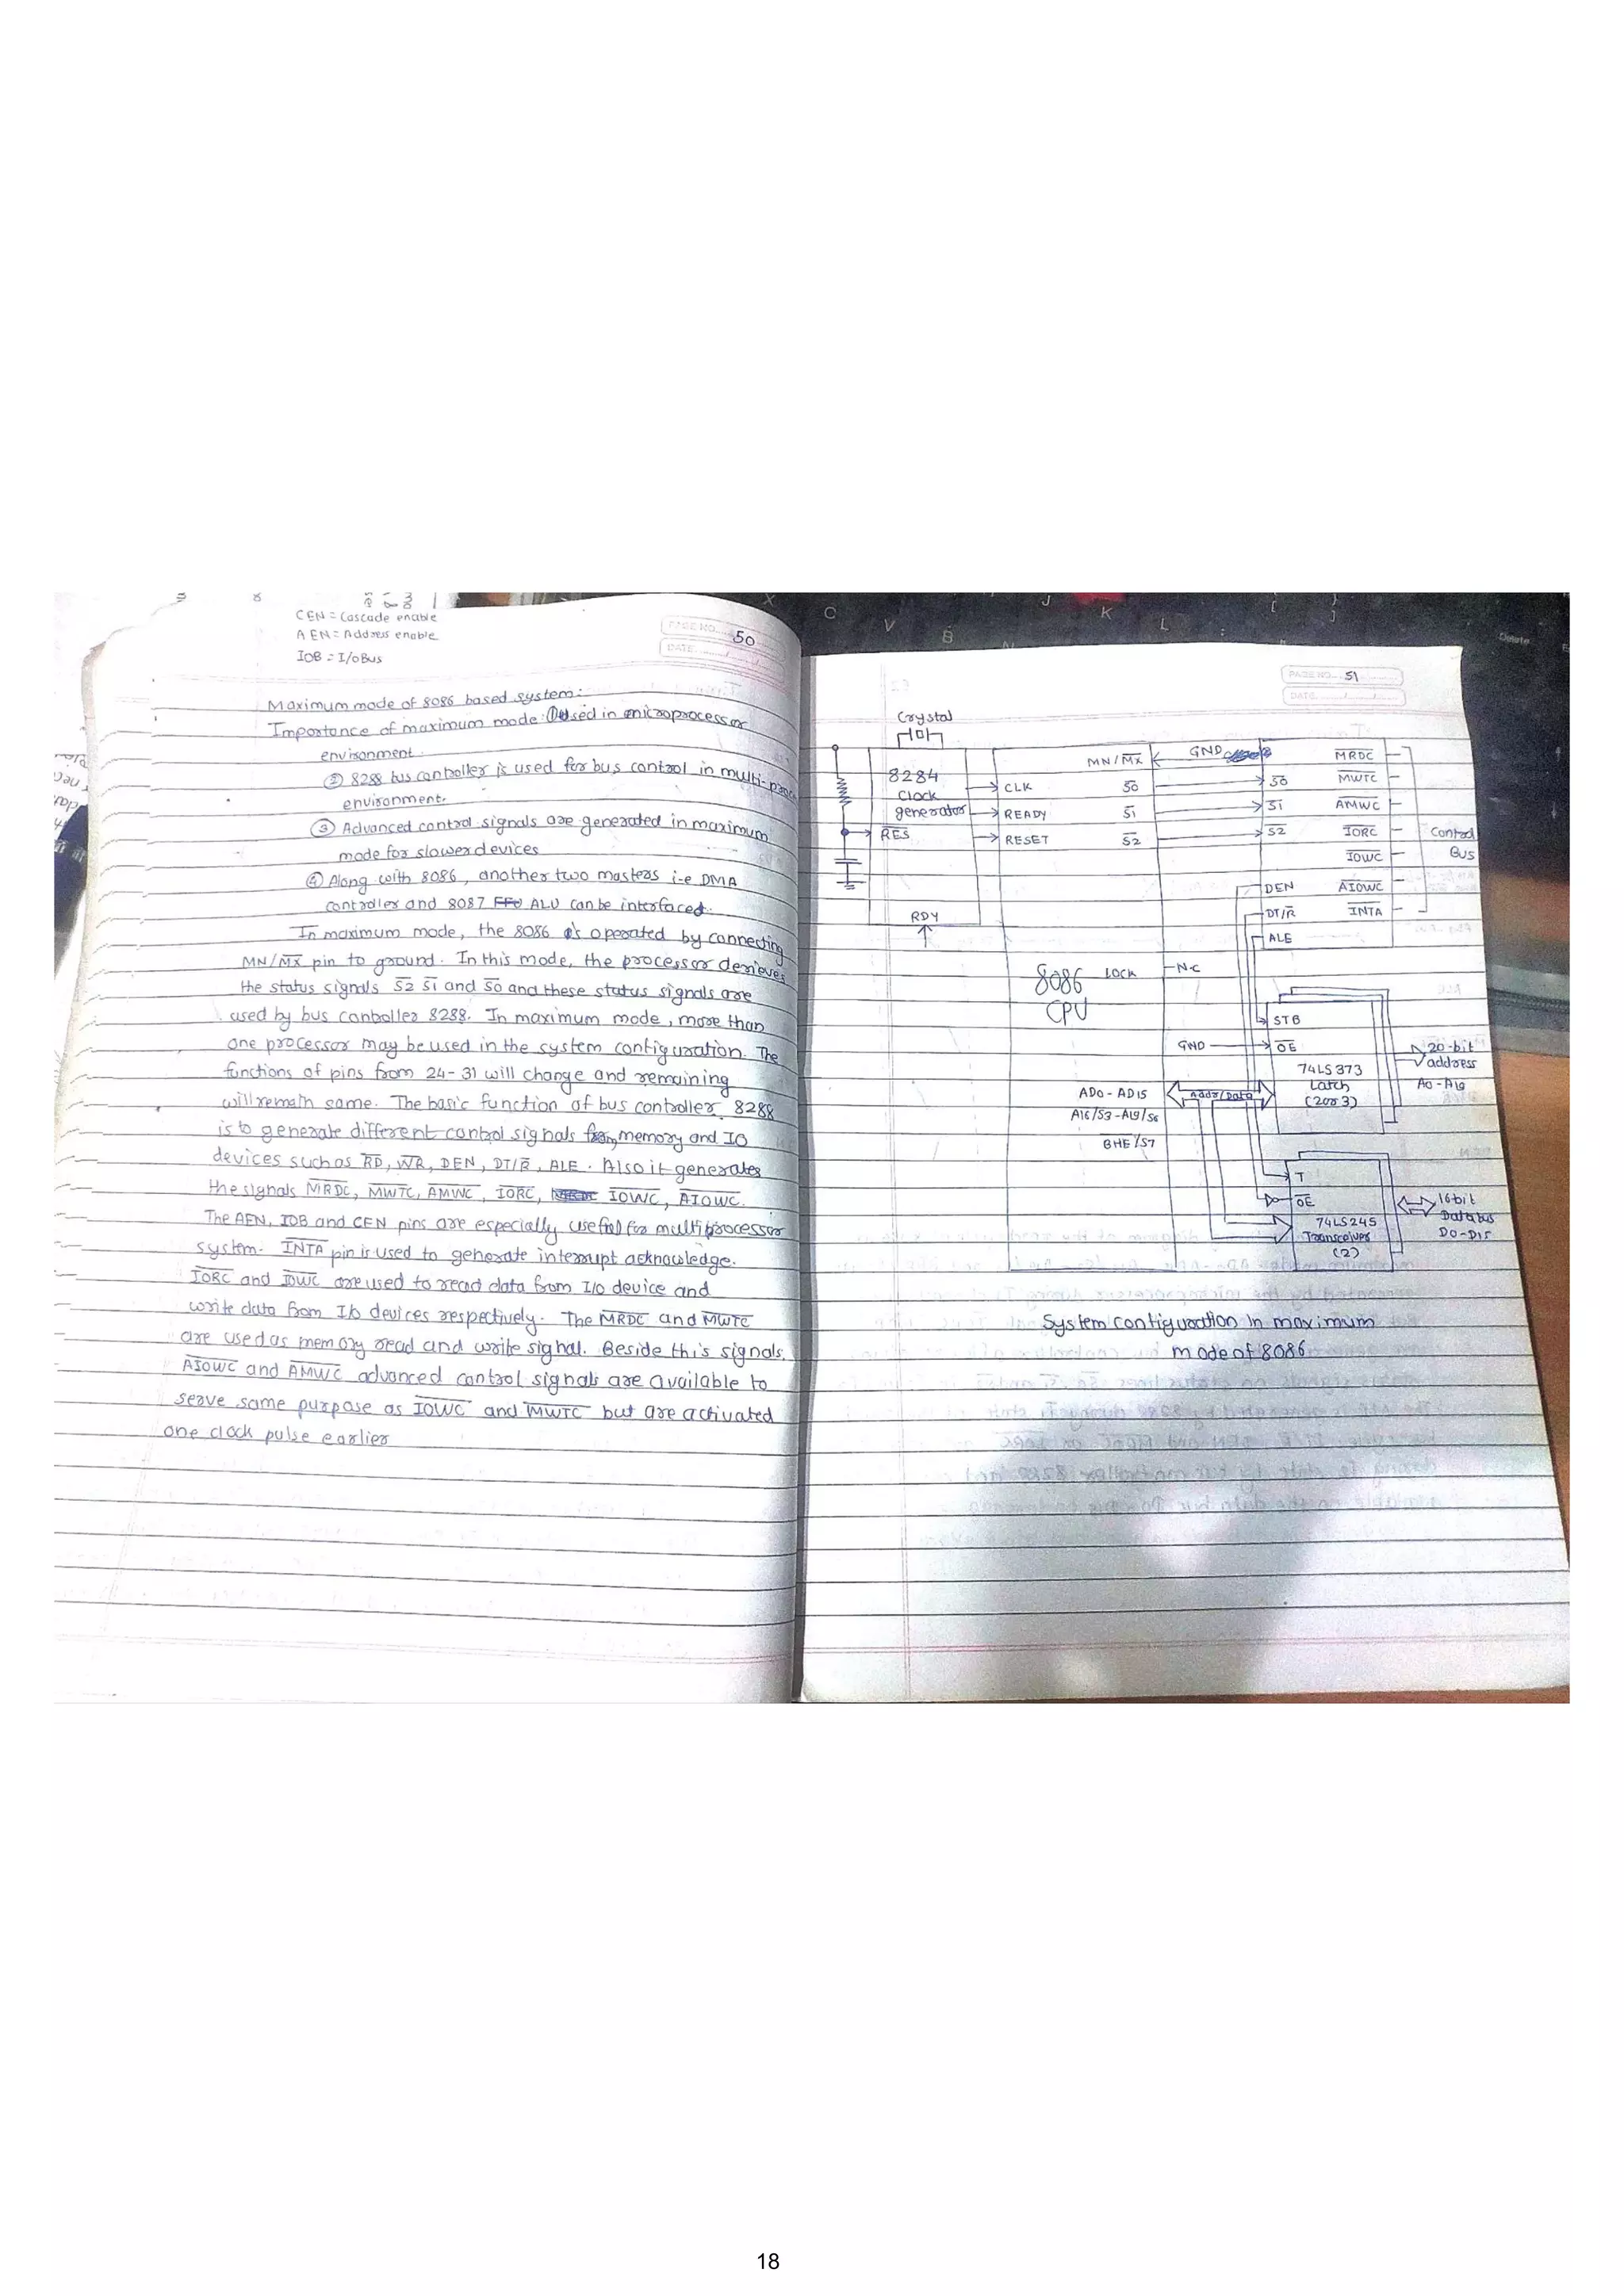 CEN = Cascade enable
AEN = Address enable
IOB = I/O Bus
PAGE NO. 50
DATE
Maximum mode of 8086 based system:
Importance of maximum mode: ① Used in microprocessor
environment.
② 8288 bus controller is used for bus control in multi-proc
environment.
③ Advanced control signals are generated in maximum
mode for slower devices
④ Along with 8086, another two masters i-e DMA
controller and 8087 ALU can be interfaced.
In maximum mode, the 8086 is operated by connecting
MN/M̅X̅ pin to ground. In this mode, the processor derieves
the status signals S̅2̅ S̅1̅ and S̅0̅ and these status signals are
used by bus controller 8288. In maximum mode, more than
one processor may be used in the system configuration. The
functions of pins from 24-31 will change and remaining
will remain same. The basic function of bus controller 8288
is to generate different control signals from memory and IO
devices such as R̅D̅, W̅R̅, DEN, DT/R̅, ALE. Also it generates
the signals M̅R̅D̅C̅, M̅W̅T̅C̅, A̅M̅W̅C̅, I̅O̅R̅C̅, I̅O̅W̅C̅, A̅I̅O̅W̅C̅.
The AEN, IOB and CEN pins are especially useful for multiprocessor
system. I̅N̅T̅A̅ pin is used to generate interrupt acknowledge.
I̅O̅R̅C̅ and I̅O̅W̅C̅ are used to read data from I/O device and
write data from I/o devices respectively. The M̅R̅D̅C̅ and M̅W̅T̅C̅
are used as memory read and write signal. Beside this signals,
A̅I̅O̅W̅C̅ and A̅M̅W̅C̅ advanced control signals are available to
serve same purpose as I̅O̅W̅C̅ and M̅W̅T̅C̅ but are activated
one clock pulse earlier
PAGE NO. 51
DATE
Crystal
8284
Clock
generator
R̅E̅S̅
RDY
CLK
READY
RESET
MN/M̅X̅
S̅0̅
S̅1̅
S̅2̅
GND
S̅0̅
S̅1̅
S̅2̅
DEN
DT/R̅
ALE
M̅R̅D̅C̅
M̅W̅T̅C̅
A̅M̅W̅C̅
I̅O̅R̅C̅
I̅O̅W̅C̅
A̅I̅O̅W̅C̅
I̅N̅T̅A̅
Control
Bus
8086
CPU
LOCK
N.C
STB
GND
O̅E̅
74LS373
Latch
(2 or 3)
20-bit
address
A0-A19
AD0-AD15
A16/S3-A19/S6
B̅H̅E̅/S7
Addr/Data
T
O̅E̅
74LS245
Transceivers
(2)
16bit
Data bus
D0-D15
System configuration in maximum
mode of 8086
18